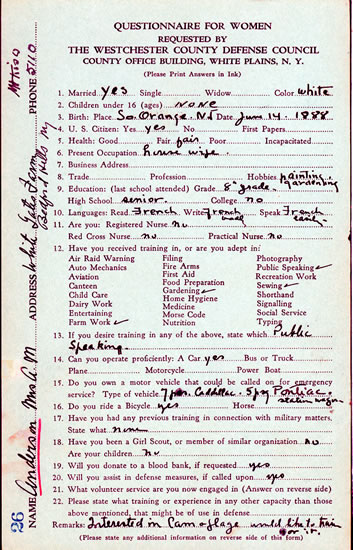 QUESTIONNAIRE FOR WOMEN
REQUESTED BY
THE WESTCHESTER COUNTY DEFENSE COUNCIL
COUNTY OFFICE BUILDING, WHITE PLAINS, N. Y.
(Please Print Answers in Ink)
1. Married yes Single Widow Color white
2. Children under 16 (ages) none
3. Birth: Place So. Orange. N.J. Date June 14. 1888
4. U. S. Citizen: Yes yes No First Papers
5. Health: Good Fair fair Poor Incapacitated
6. Present Occupation house wife.
7. Business Address
8. Trade Profession Hobbies painting. gardening
9. Education: (last school attended) Grade 8th grade.
High School senior. College no
10. Languages: Read French. Write French Speak French
11. Are you: Registered Nurse no
Red Cross Nurse no Practical Nurse no
12. Have you received training in, or are you adept in:
Air Raid Warning Filing Photography
Auto Mechanics Fire Arms Public Speaking ✓
Aviation First Aid Recreation Work
Canteen Food Preparation Sewing ✓
Child Care Gardening ✓ Shorthand
Dairy Work Home Hygiene Signalling
Entertaining Medicine Social Service
Farm Work ✓ Morse Code Typing
Nutrition
13. If you desire training in any of the above, state which Public
Speaking.
14. Can you operate proficiently: A Car yes Bus or Truck
Plane Motorcycle Power Boat
15. Do you own a motor vehicle that could be called on for emergency
service? Type of vehicle 7 pas. Cadillac. 5 pas Pontiac station wagon.
16. Do you ride a Bicycle yes Horse
17. Have you had any previous training in connection with military matters.
State what none
18. Have you been a Girl Scout, or member of similar organization no
Are your children no
19. Will you donate to a blood bank, if requested yes
20. Will you assist in defense measures, if called upon yes
21. What volunteer service are you now engaged in (Answer on reverse side)
22. Please state what training or experience in any other capacity than those
above mentioned, that might be of use in defense
Remarks: Interested in Camoflage would like to train
for it.
(Please state any additional information on reverse side of this form)
26 NAME Anderson Mrs A. M ADDRESS White Gates Farm PHONE 5110
Bedford Hills NY
Mt Kisco